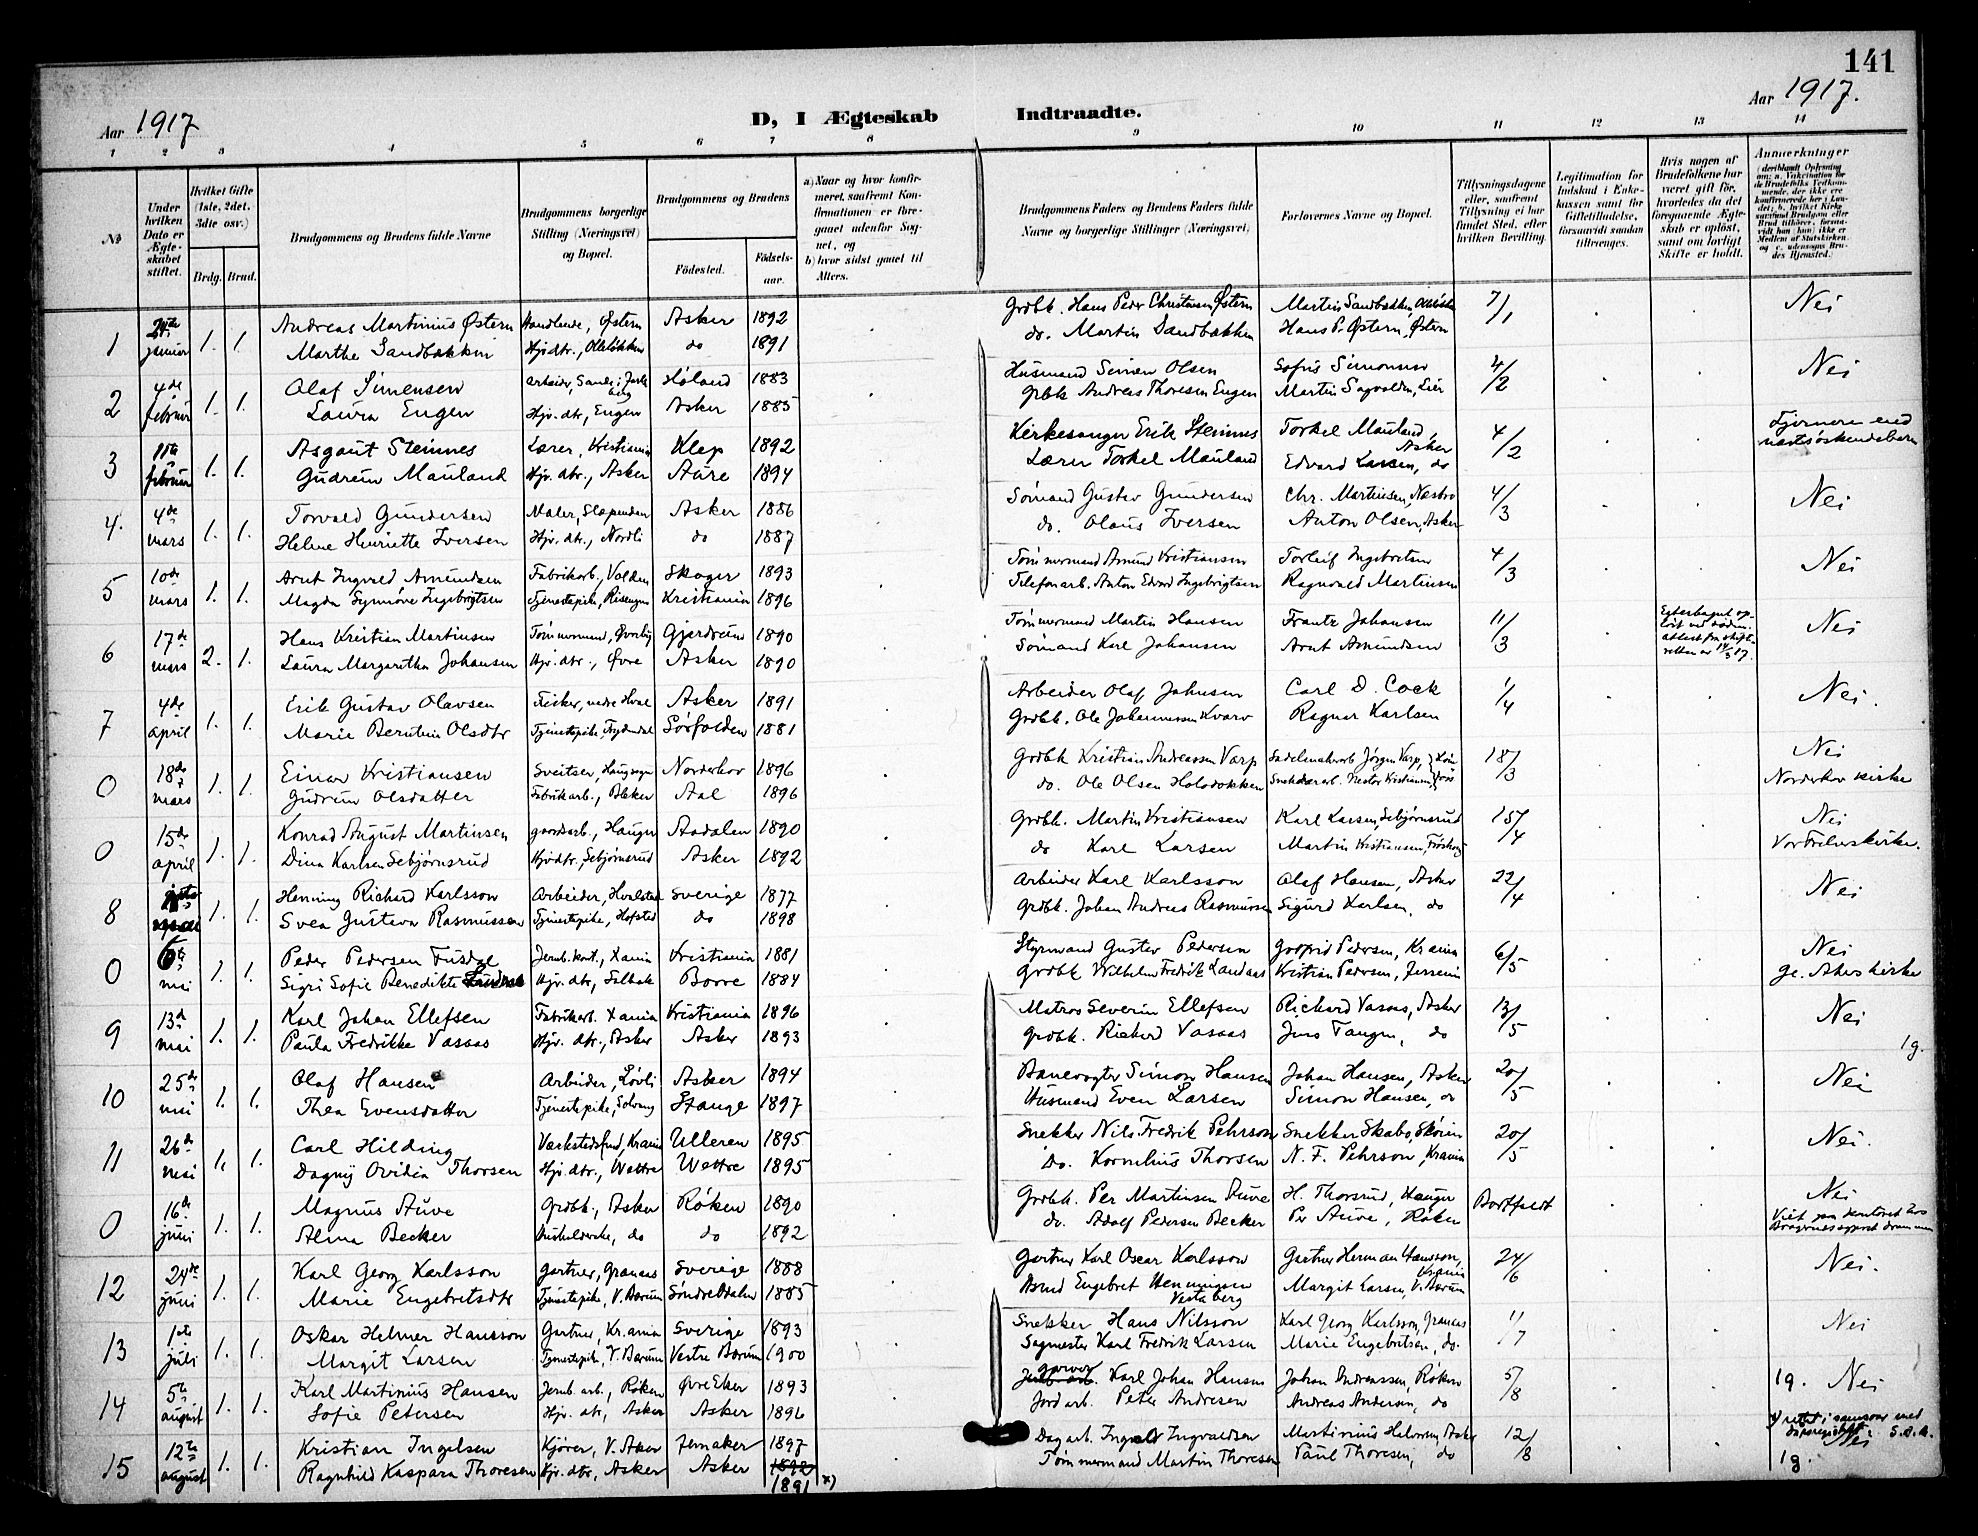 141
Aar 1917 D, I Ægteskab Indtraadte. Aar 1917.
1 2 3 4 5 6 7 8 9 10 11 12 13 14
№
Under hvilken Dato er Ægteskabet stiftet.
Hvilket Gifte (1ste, 2det, 3die osv.)
Brdg. Brud.
Brudgommens og Brudens fulde Navne
Brudgommens borgerlige Stilling (Næringsvei) og Bopæl.
Brudgommens og Brudens
Fødested. Fødselsaar.
a) Naar og hvor konfirmeret, saafremt Konfirmationen er foregaaet udenfor Sognet, og
b) hvor sidst gaaet til Alters.
Brudgommens Faders og Brudens Faders fulde Navne og borgerlige Stillinger (Næringsvei)
Forlovernes Navne og Bopæl.
Tillysningsdagene eller, saafremt Tillysning ei har fundet Sted, efter hvilken Bevilling.
Legitimation for Indskud i Enkekassen samt for Giftetilladelse, forsaavidt saadan tiltrænges.
Hvis nogen af Brudefolkene har været gift før, hvorledes da det foregaaende Ægteskab er opløst, samt om lovligt Skifte er holdt.
Anmerkninger
1 januar 1. 1. Andreas Martinius Østern Handlende, Østern Asker 1892 Grdbk. Hans Peder Christensen Østern Martin Sandbækken 7/1 Nei
Marthe Sandbækken Hjv.dtr. do 1891 do. Martin Sandbækken Hans P. Østern, Østern
2 4de februar 1. 1. Olaf Simensen Høland 1883 Husmand Simen Olsen Sofus Simonsen 4/2 Nei
Laura Engen Hjv. dtr., Engen Asker 1885 Grbk Andreas Thoresen Engen Martin Sagvolden, Lier
3 februar 1. 1. Asgaut Steinnes Lærer, Kristiania Klep 1892 Kirkesanger Erik Steinnes Torkel Mauland, Asker 4/2 Fjernere end næstsøskendebarn
Gudrun Mauland Hjv. dtr., Asker Aure 1894 Lærer Torkel Mauland Edvard Larsen, do
4. 4de mars 1. 1. Torvald Gundersen Maler, Slependen Asker 1886 Sømand Gustav Gundersen Chr. Martinsen, Næsbro 4/3 Nei
Helene Henriette Iversen Hjv. dtr., Nordli do 1887 do. Olaus Iversen Anton Olsen, Asker
5 10de mars 1. 1. Arnt Ingvald Amundsen Fabrikarb., Valden Skoger 1893 Tømmermand Amund Kristiansen Torleif Ingebretsen 4/3 Nei
Magda Synnøve Ingebrigtsen Tjenestepike, Risengen Kristiania 1896 Telefonarb. Anton Edvard Ingebrigtsen Ragnvald Martinsen
6 17de mars 2. 1. Hans Kristian Martinsen Tømmermand, Gjerdrum 1890 Tømmermand Martin Hansen Frantz Johansen 11/3 Egteskapet opløst ved døden. attest fra skifteretten av 14/3 17. Nei
Laura Margaretha Johansen Hjv. dtr., Øvre Asker 1890 Sømand Karl Johansen Arnt Amundsen
7 4de april 1. 1. Erik Gustav Olavsen Fisker, nedre Hval Asker 1891 Arbeider Olaf Johnsen Carl D. Cock 1/4 Nei.
Marie Berntine Olsdtr Tjenestepike, Sørfolden 1881 Grdbk. Ole Johannessen Kvarv Ragnar Karlsen
0 18de mars 1. 1. Einar Kristiansen Sveitser, Norderhov 1896 Grdbk Kristian Andreassen Varp Sadelmakerarb Jørgen Varp, 18/3 Nei
Gudrun Olsdatter Fabrikarb., Bleker Aal 1896 do. Ole Olsen Holodokken Snekkerarb. Nestor Kristiansen, Norderhov kirke
0 15de april 1. 1. Konrad August Martinsen gaardsarb., Haugen Aadalen 1890 Grdbk. Martin Kristiansen Karl Larsen, Sebjørnsrud 15/4 Nei
Dina Karlsen Sebjørnsrud Hjv.dtr., Sebjørnsrud Asker 1892 do Karl Larsen Martin Kristiansen, Vor Frelserskirke.
8 1. 1. Henning Richard Karlsson Arbeider, Hvalstad Sverige 1877 Arbeider Karl Karlsson Olaf Hansen, Asker 22/4 Nei
Svea Gustava Rasmussen Tjenestepike, Hofstad do 1898 Grdbk. Johan Andreas Rasmussen Sigurd Karlsen, do
0 6te mai 1. 1. Peder Pedersen Kristiania 1881 Styrmand Gustav Pedersen Godfrid Pedersen, Krania 6/5 Nei
Sigri Sofie Benedikte Hjv. dtr., Solbak Borre 1884 Grdbk Wilhelm Fredrik Landaas Kristian Pedersen, Gl. Akers kirke
9 13de mai 1. 1. Karl Johan Ellefsen Fabrikarb. Xania Kristiania 1896 Matros Severin Ellefsen Richard Vassas, Asker 13/5 Nei
Paula Fredrikke Vassas Hjv. dtr., Asker Asker 1893 Grdbk. Rickard Vassas Jens Tangen, do
19.
10 25de mai 1. 1. Olaf Hansen Arbeider, Løvli Asker 1894 Banevogter Simon Hansen Johan Hansen, Asker 20/5 Nei
Thea Evensdatter Tjenestepike, Solvang Stange 1897 Husmand Even Larsen Simon Hansen, do
11 26de mai 1. 1. Carl Hilding Værkstedsfmd, Krania Ulleren 1895 Snekker Nils Fredrik Pehrson Snekker Skabo, Skøien 20/5 Nei.
Dagny Ovidia Thorsen Hjv. dtr., Wettre Wettre 1895 Do. Kornelius Thorsen N. F. Pehrson, Krania
0 16de juni 1. 1. Magnus Auve Grdbk., Asker Røken 1890 Grdbk. Per Martinsen Auve H. Thorsrud, Hauger Bortfaldt Nei
Alma Becker do do 1892 do. Adolf Pedersen Becker Per Auve, Røken Viet paa kontoret hos
12 24de juni 1. 1. Karl Georg Karlsson Gartner, Granaas Sverige 1888 Gartner Karl Oscar Karlsson Gartner Herman Hansson, Krania 24/6 Nei.
Marie Engebretsdtr Tjenestepike, V. Bærum Søndre Odalen 1885 Engebret Henningsen Margit Larsen, V. Bærum
13 1ste juli 1. 1. Oskar Helmer Hansson Gartner, Kr.ania Sverige 1893 Snekker Hans Nilsson Karl Georg Karlsson, Granaas 1/7 Nei
Margit Larsen Tjenestepike, V. Bærum Vestre Bærum 1900 Sagmester Karl Fredrik Larsen Marie Engebretsen, do.
14 5te august 1. 1. Karl Martinius Hansen Jernb. arb., Røken Øvre Eker 1893 garver Karl Johan Hansen Johan Andreassen, Røken 5/8 19. Nei
Sofie Petersen Hjv. dtr., Asker Asker 1896 Jord arb. Peter Andresen Andreas Andersen, do
15 12te august 1. 1. Kristian Ingolsen Kjører, V. Aker Jevnaker 1897 Dagarb. Ingvald Ingvaldsen Martinius Halvorsen, Asker 12/8 x) rettet i samsvar med dåpsregistret S.A.A. Nei
Ragnhild Kaspara Thoresen Hjv. dtr., Asker Asker 1892 Tømmermand Martin Thoresen Paul Thoresen, do 19.
1891 x)